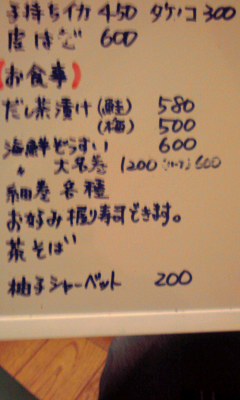 子持ちイカ 450 タケノコ 300
皮はぎ 600
(お食事)
だし茶漬け(鮭) 580
(梅) 500
海鮮どうすい 600
〃 大名巻 1200 (ハーフ) 600
細巻 各種
おこのみ握り寿司できます。
茶そば
柚子シャーベット 200